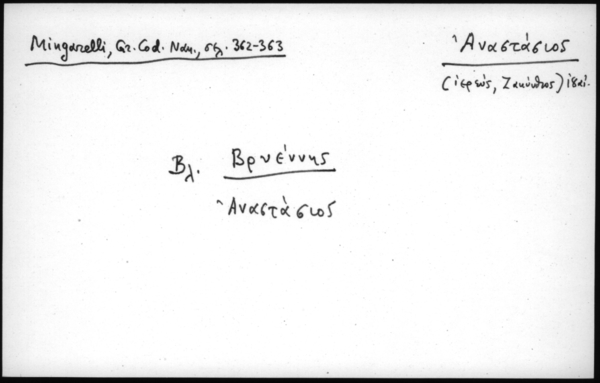 Mingarelli, Gr. Cod. Nan., σελ. 362-363
Ἀναστάσιος
(ἱερεύς, Ζακύνθος) ις' αἰ.
Βλ. Βρυέννης
Ἀναστάσιος